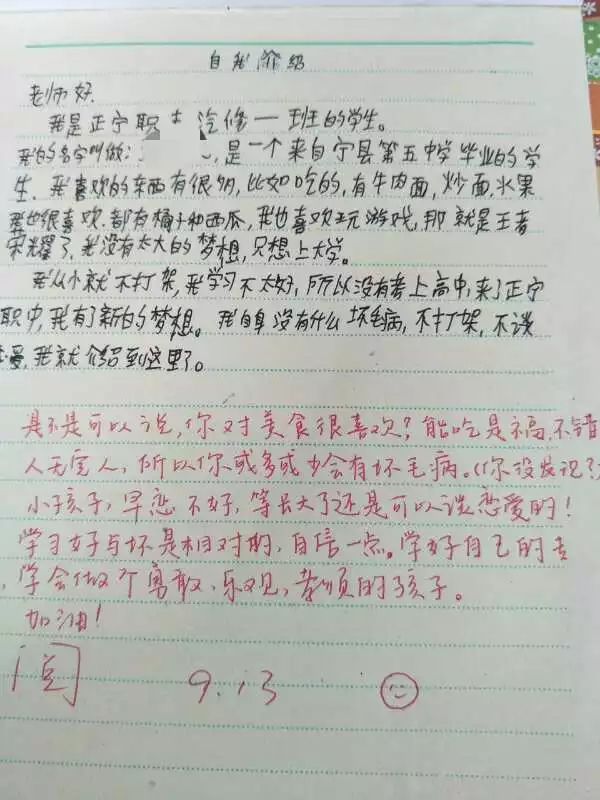 自我介绍
老师好.
我是正宁职 汽修一班的学生。
我的名字叫做: ,是一个来自宁县第五中学毕业的学
生.我喜欢的东西有很多,比如吃的,有牛肉面,炒面,水果
我也很喜欢.都有橘子和西瓜,我也喜欢玩游戏,那就是王者
荣耀了,我没有太大的梦想,只想上大学。
我从小就不打架,我学习不太好,所以没有考上高中,来了正宁
职中,我有了新的梦想。我自身没有什么坏毛病,不打架,不谈
恋爱,我就介绍到这里了。
是不是可以说,你对美食很喜欢?能吃是福,不错
人无完人,所以你或多或少会有坏毛病。(你没发现?
小孩子,早恋不好,等长大了还是可以谈恋爱的!
学习好与坏是相对的,自信一点。学好自己的专
,学会做个勇敢、乐观,孝顺的孩子。
加油!
阅 9.13